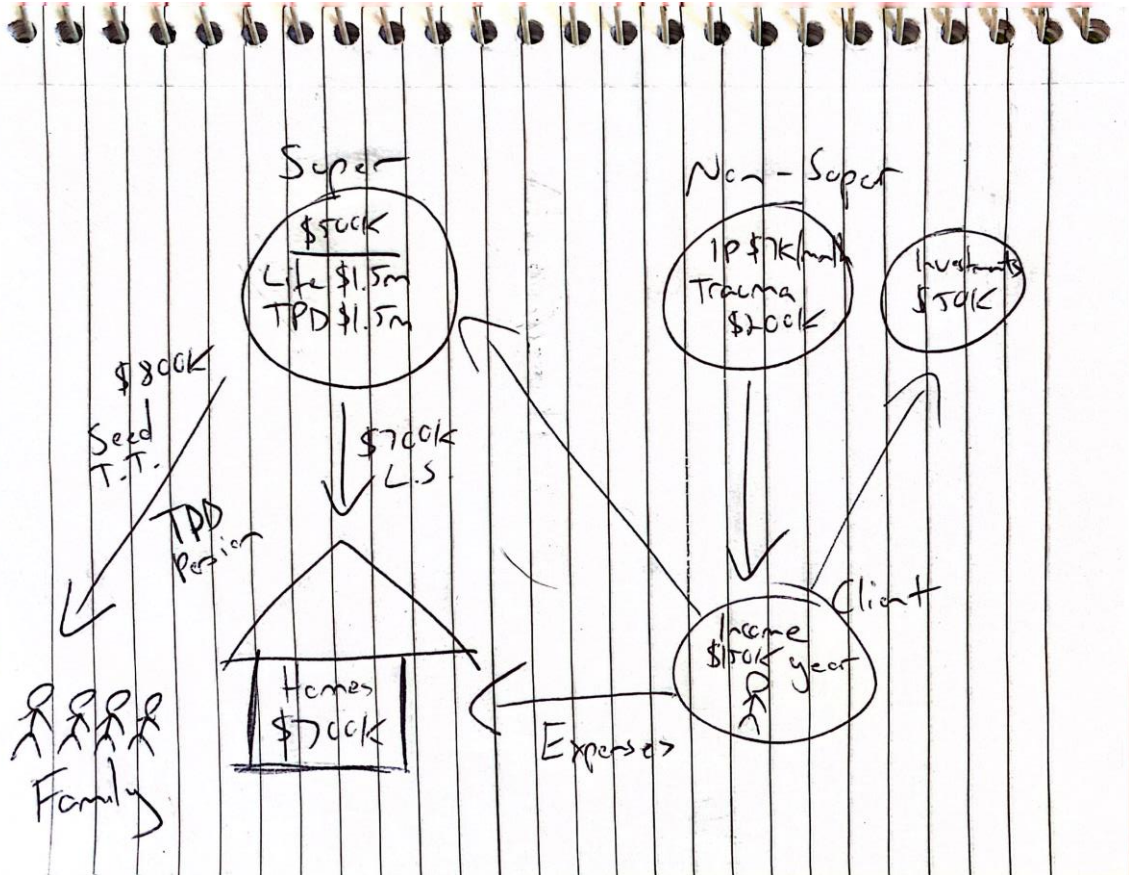 Super
$500K
Life $1.5m
TPD $1.5m
Non-Super
IP $7K/month
Trauma
$200K
Investments
$50K
$800K
Seed
T.T.
TPD
Pension
$700K
L.S.
Client
Income
$150K year
Homes
$700K
Expenses
Family